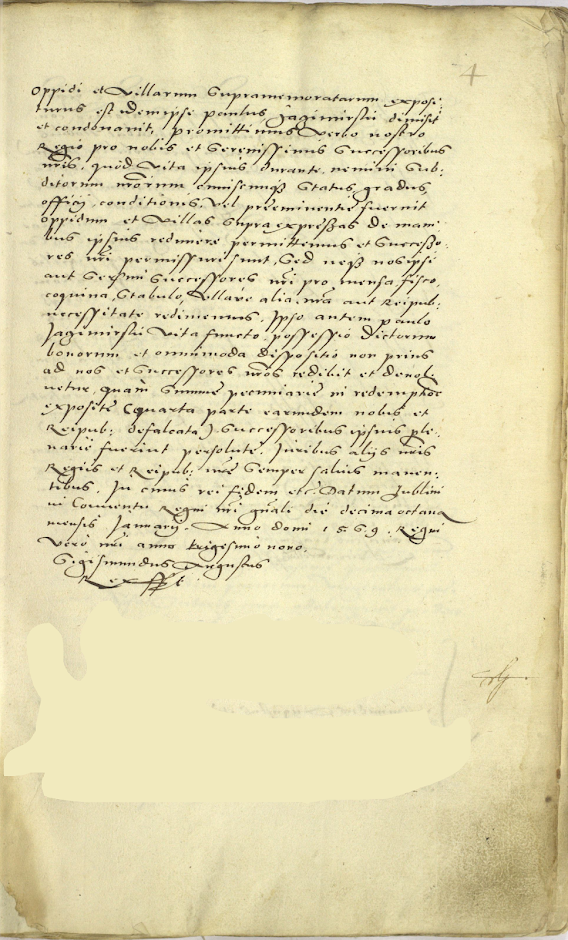 4
oppidi et villarum supramemoratarum exposi:
turus est idemipse paulus Jagimirski dimisit
et condonavit, promittimus verbo nostro
Regio pro nobis et Serenissimis Successoribus
nris, quòd vita ipsius durante, nemini Sub:
ditorum nrorum cuiuscunqz Status, gradus,
officij, conditionis, vel preeminentie fuerint
oppidum et villas supra expressas de mani
bus ipsius redimere permittemus et Successo
res nri permissuri sunt, Sed neqz nosipsi
aut Sermi Successores nri pro mensa fisco,
coquina, Stabulo, villave alia, nra aut Reipub:
necessitate redimemus. Ipso autem paulo
Jagimirski vita functo, possessio dictorum
bonorum et omnimoda dispositio non prius
ad nos et Successores nros redibit et devol:
vetur, quàm Summe pecuniarie in redemptioe
exposite (quarta parte earundem nobis et
Reipub: defalcata) Successoribus ipsius ple
narie fuerint persolute. Juribus alijs nris
Regiis et Reipub: nre Semper salvis manen:
tibus. In cuius rei fidem etc. Datum Lublini
in Conventu Regni nri gnali die decima octava
mensis January. Anno domi 1569. Regni
vero nri anno trigesimo nono.
Sigismundus Augustus
Rex sspt